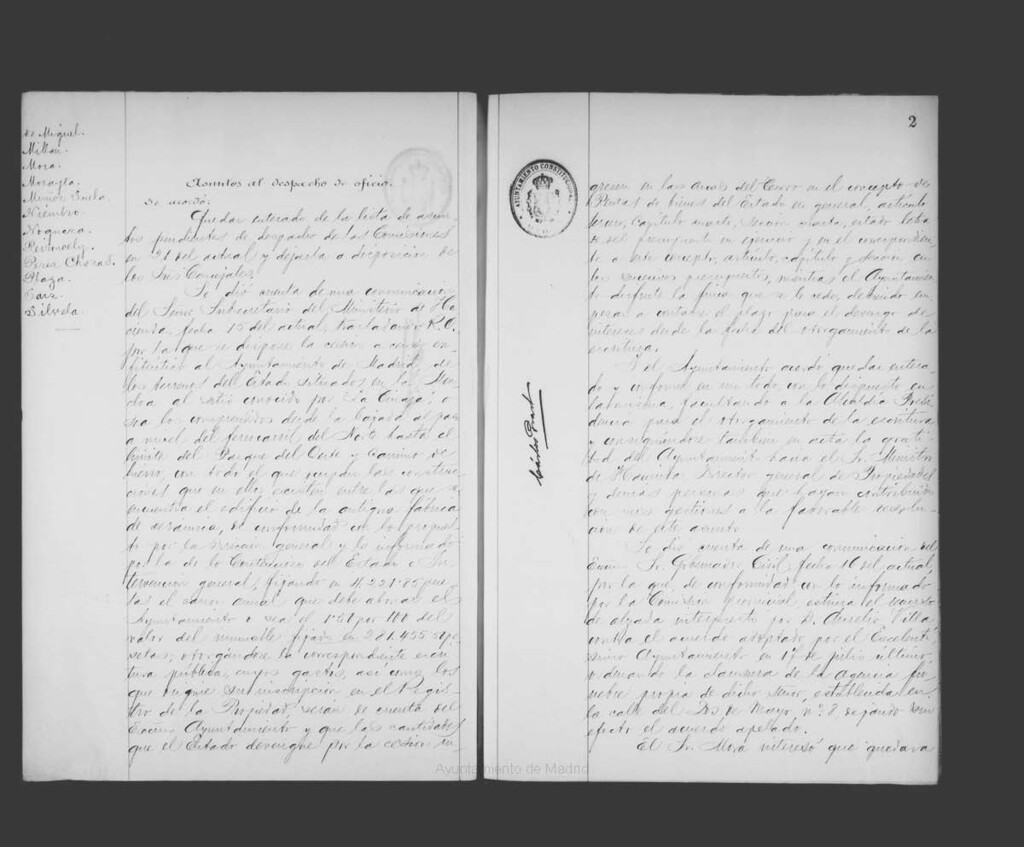 de Miguel.
Millan.
Mora.
Morayta.
Muñoz
Niembro.
Noguera.
Perez Chozas.
Plaza.
Saiz.
Silvela.
Asuntos al despacho de oficio.
Se acordó:
Quedar enterado de la lista de asun-
tos pendientes de despacho de las Comisiones
en 21 del actual y dejarla a disposicion de
los Sres Concejales.
Se dió cuenta de una comunicacion
del Ilmo. Subsecretario del Ministerio de Ha
cienda, fecha 15 del actual, trasladando R.O.
por la que se dispone la cesion a censo en-
fitéutico al Ayuntamiento de Madrid, de
los terrenos del Estado situados en la Mon
cloa al sitio conocido por "La
sea los comprendidos desde la bajada del paso
a nivel del ferrocarril del Norte hasta el
límite del Parque del Oeste y Camino de
hierro, con todo el que ocupan las construc
ciones que en ellos existen entre las que se
encuentra el edificio de la antigua fábrica
de cerámica, de conformidad con lo propues
to por la Direccion general y lo informado
por la de lo Contencioso del Estado e In
tervencion general, fijando en 4.221'85 pese
tas el canon anual que debe abonar el
Ayuntamiento o sea el 1'50 por 100 del
valor del inmueble fijado en 281.455
setas; otorgándose la correspondiente escri
tura pública, cuyos gastos, así como los
que origine su inscripcion en el Regis
tro de la Propiedad serán de cuenta del
Excmo Ayuntamiento y que las cantidades
que el Estado devengue por la cesion in
AYUNTAMIENTO CONSTITUCIONAL
Carlos Prast
2
gresen en las arcas del Tesoro en el concepto de
Rentas de bienes del Estado en general, artículo
tercero, capítulo cuarto, seccion cuarta, estado letra
B. del presupuesto en ejercicio y en el correspondien
te a este concepto, artículo, capítulo y seccion en
los sucesivos presupuestos, mientras el Ayuntamien
to disfrute la finca que se le cede, debiendo em
pezar a contarse el plazo para el devengo de
intereses desde la fecha del otorgamiento de la
escritura.
Y el Ayuntamiento acordó quedar entera
do y conforme en un todo con lo dispuesto en
la misma, facultando a la Alcaldía Presi
dencia para el otorgamiento de la escritura
y consignándose tambien en acta la grati
tud del Ayuntamiento hacia el Sr. Ministro
de Hacienda, Director general de Propiedades
y demás personas que hayan contribuido
con sus gestiones a la favorable resolu
cion de este asunto.
Se dió cuenta de una comunicacion del
Excmo Sr. Gobernador Civil, fecha 16 del actual,
por la que, de conformidad con lo informado
por la Comision provincial, estima el recurso
de alzada interpuesto por D. Aurelio Villa
contra el acuerdo adoptado por el Excelentí
simo Ayuntamiento en 17 de julio último,
denegando la licencia de la Agencia fú
nebre propia de dicho señor, establecida en
la calle del Dos de Mayo, nº 8, dejando sin
efecto el acuerdo apelado.
El Sr. Mora interesó que quedara
Ayuntamiento de Madrid